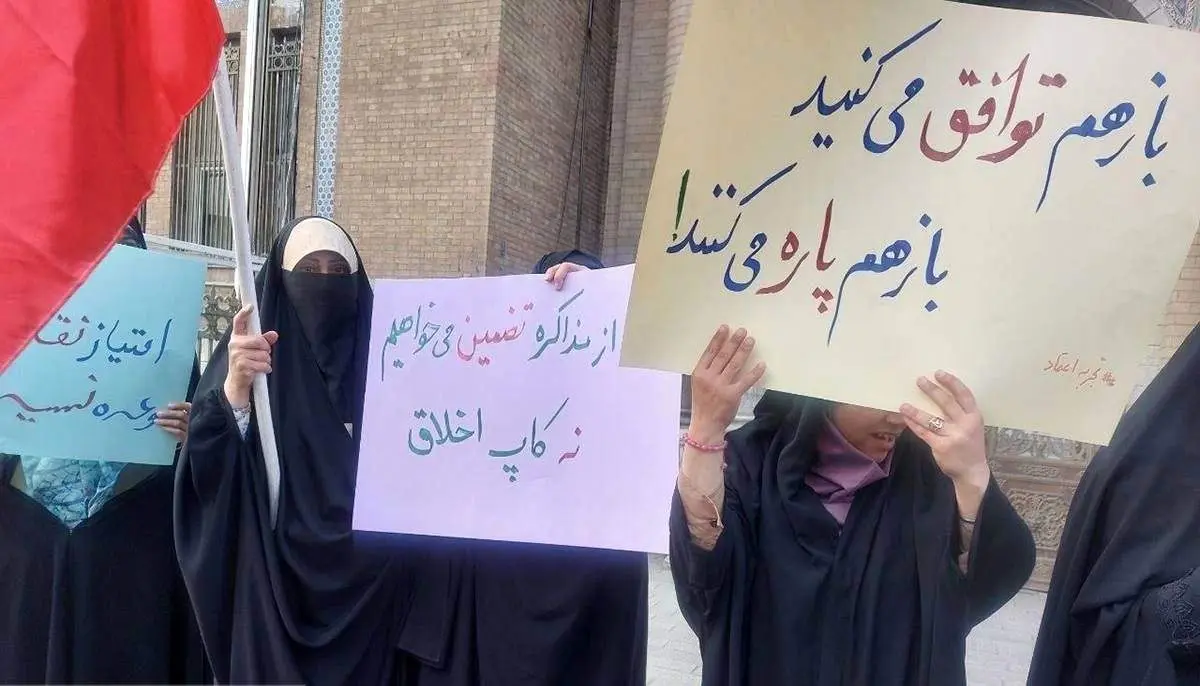 باز هم توافق می کنید
باز هم پاره می کنند!
#تجربه_اعتماد
از مذاکره تضمین می خواهیم
نه کاپ اخلاق
امتیاز
وعده نسیه